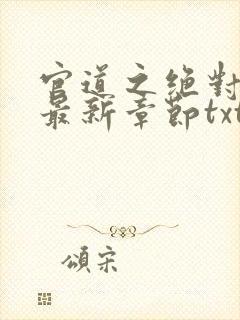 官道之绝對
最新章節txt
颂宋